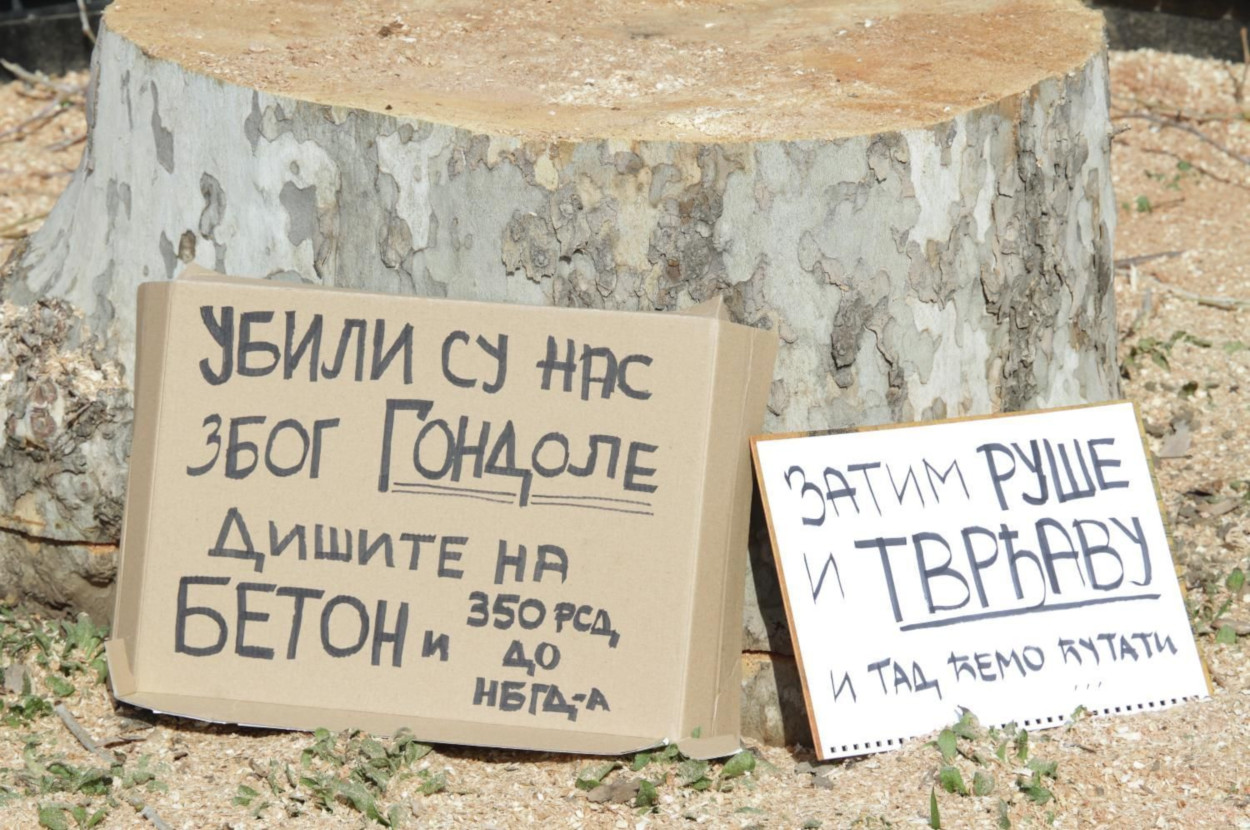 УБИЛИ СУ НАС
ЗБОГ ГОНДОЛЕ
ДИШИТЕ НА
БЕТОН И 350 РСД
ДО
НБГД-А
ЗАТИМ РУШЕ
И ТВРЂАВУ
И ТАД ЋЕМО ЋУТАТИ
...